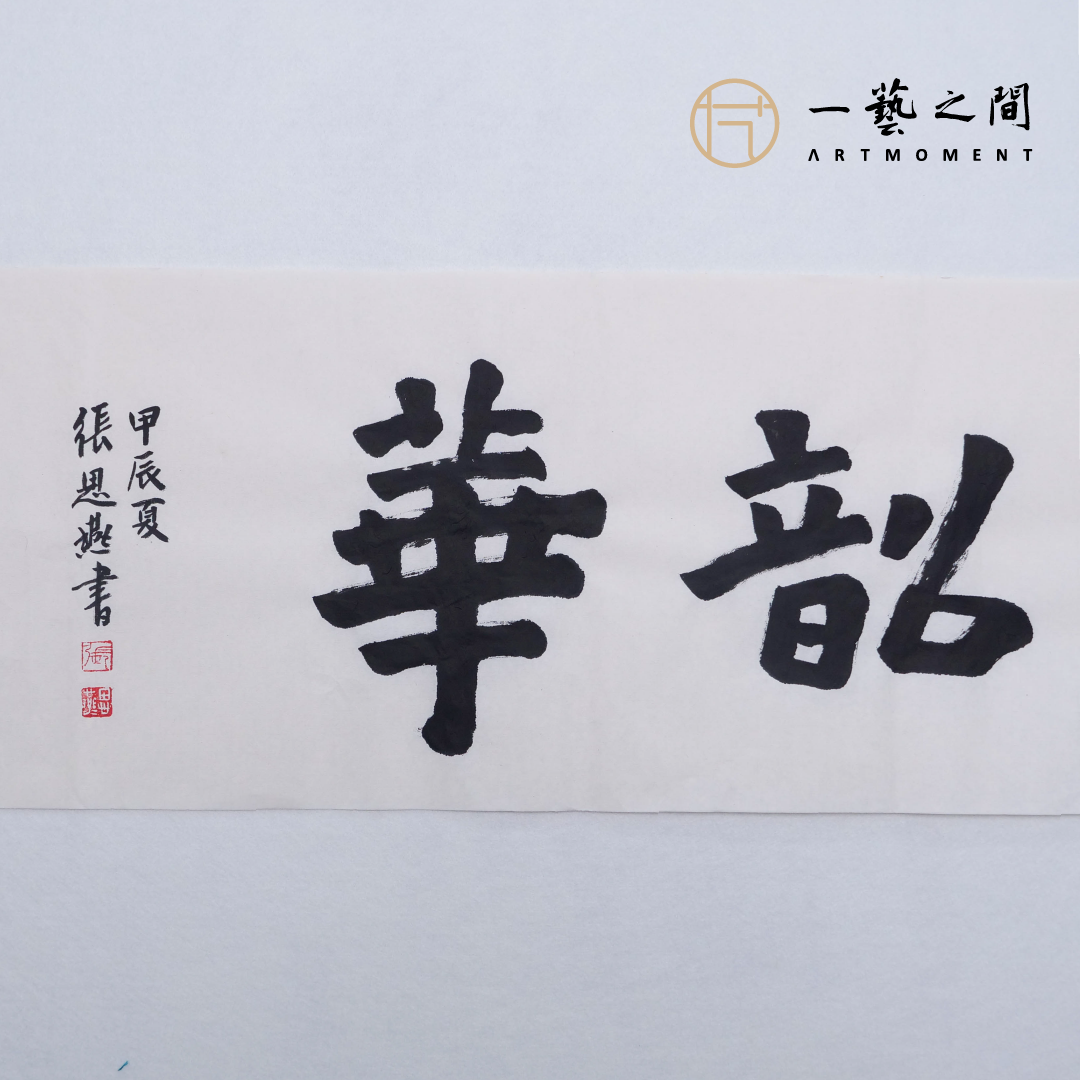 一藝之間
ARTMOMENT
韶華
甲辰夏
張思燕書
張
思燕